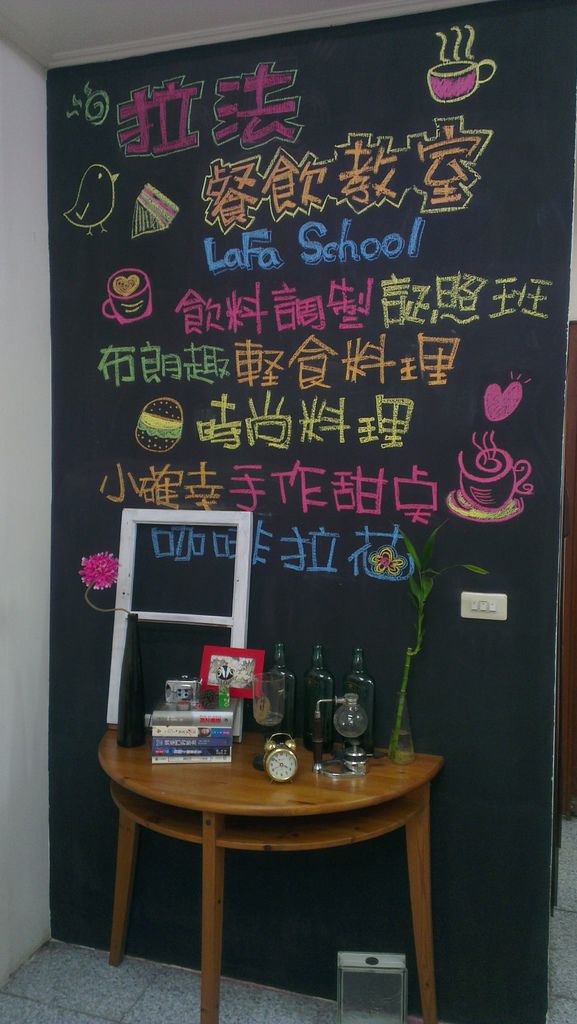 拉法
餐飲教室
LaFa School
飲料調製証照班
布朗趣輕食料理
時尚料理
小確幸手作甜点
咖啡拉花